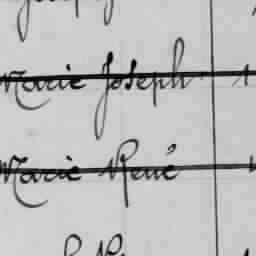 Marie Joseph
Marie René